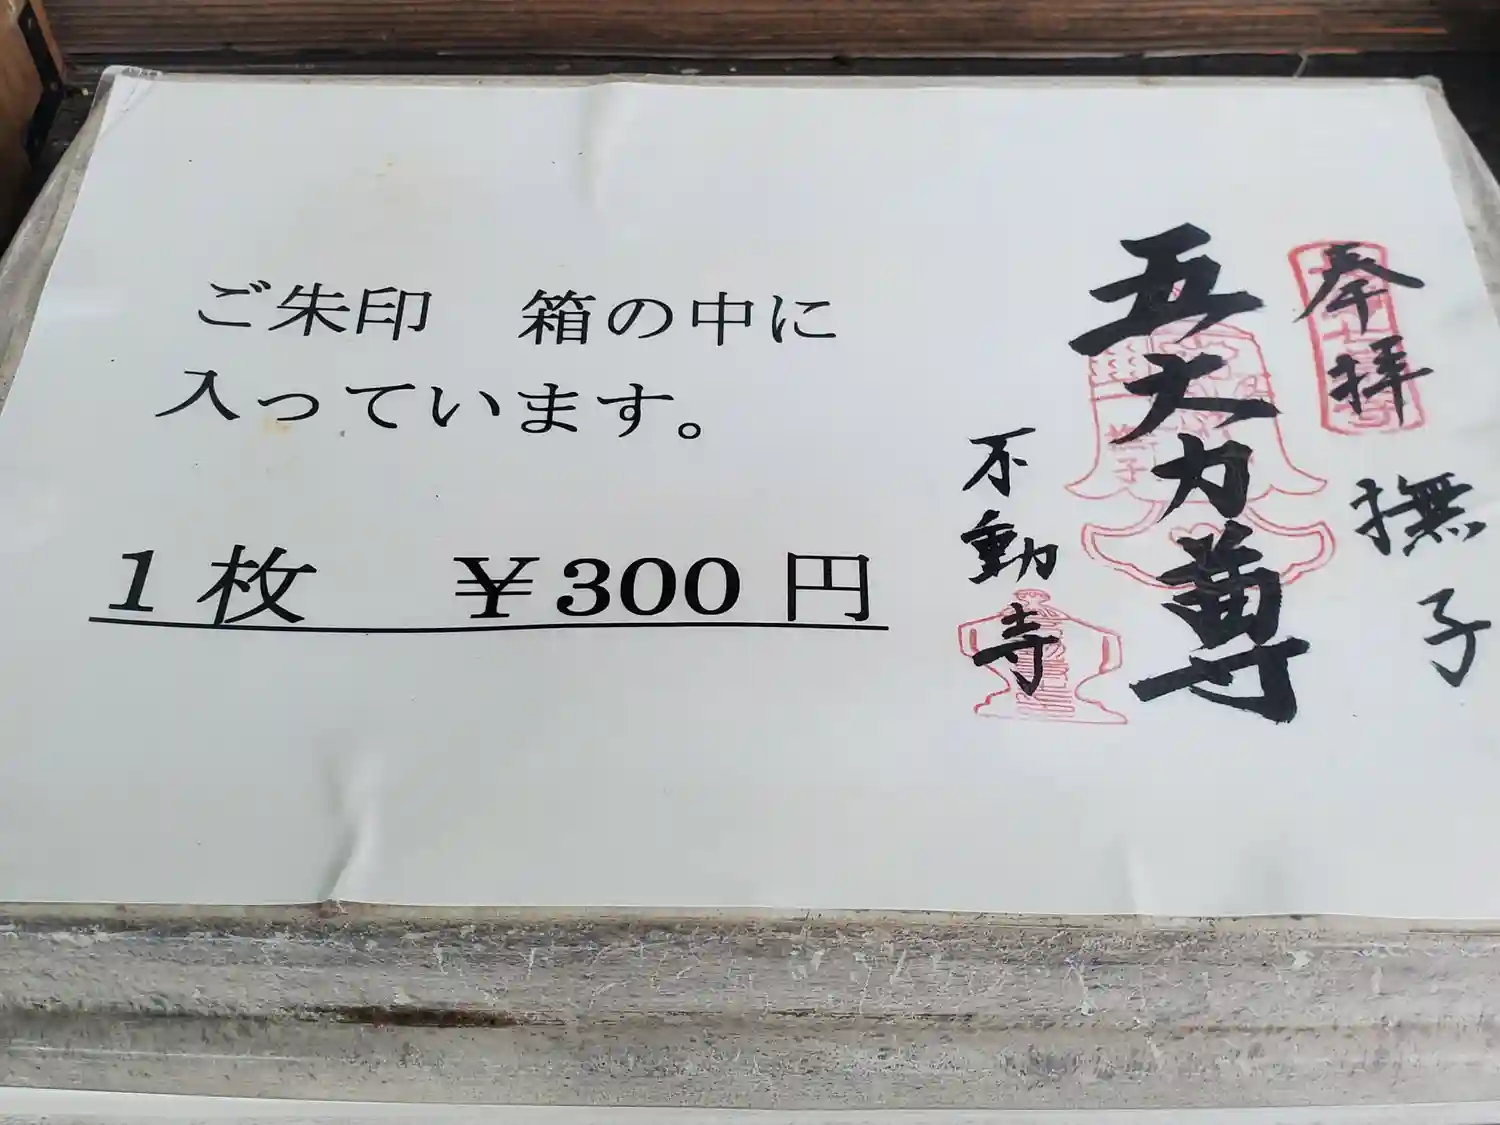 ご朱印　箱の中に
入っています。
1枚　¥300円
奉拝
撫子
五大力尊
不動寺